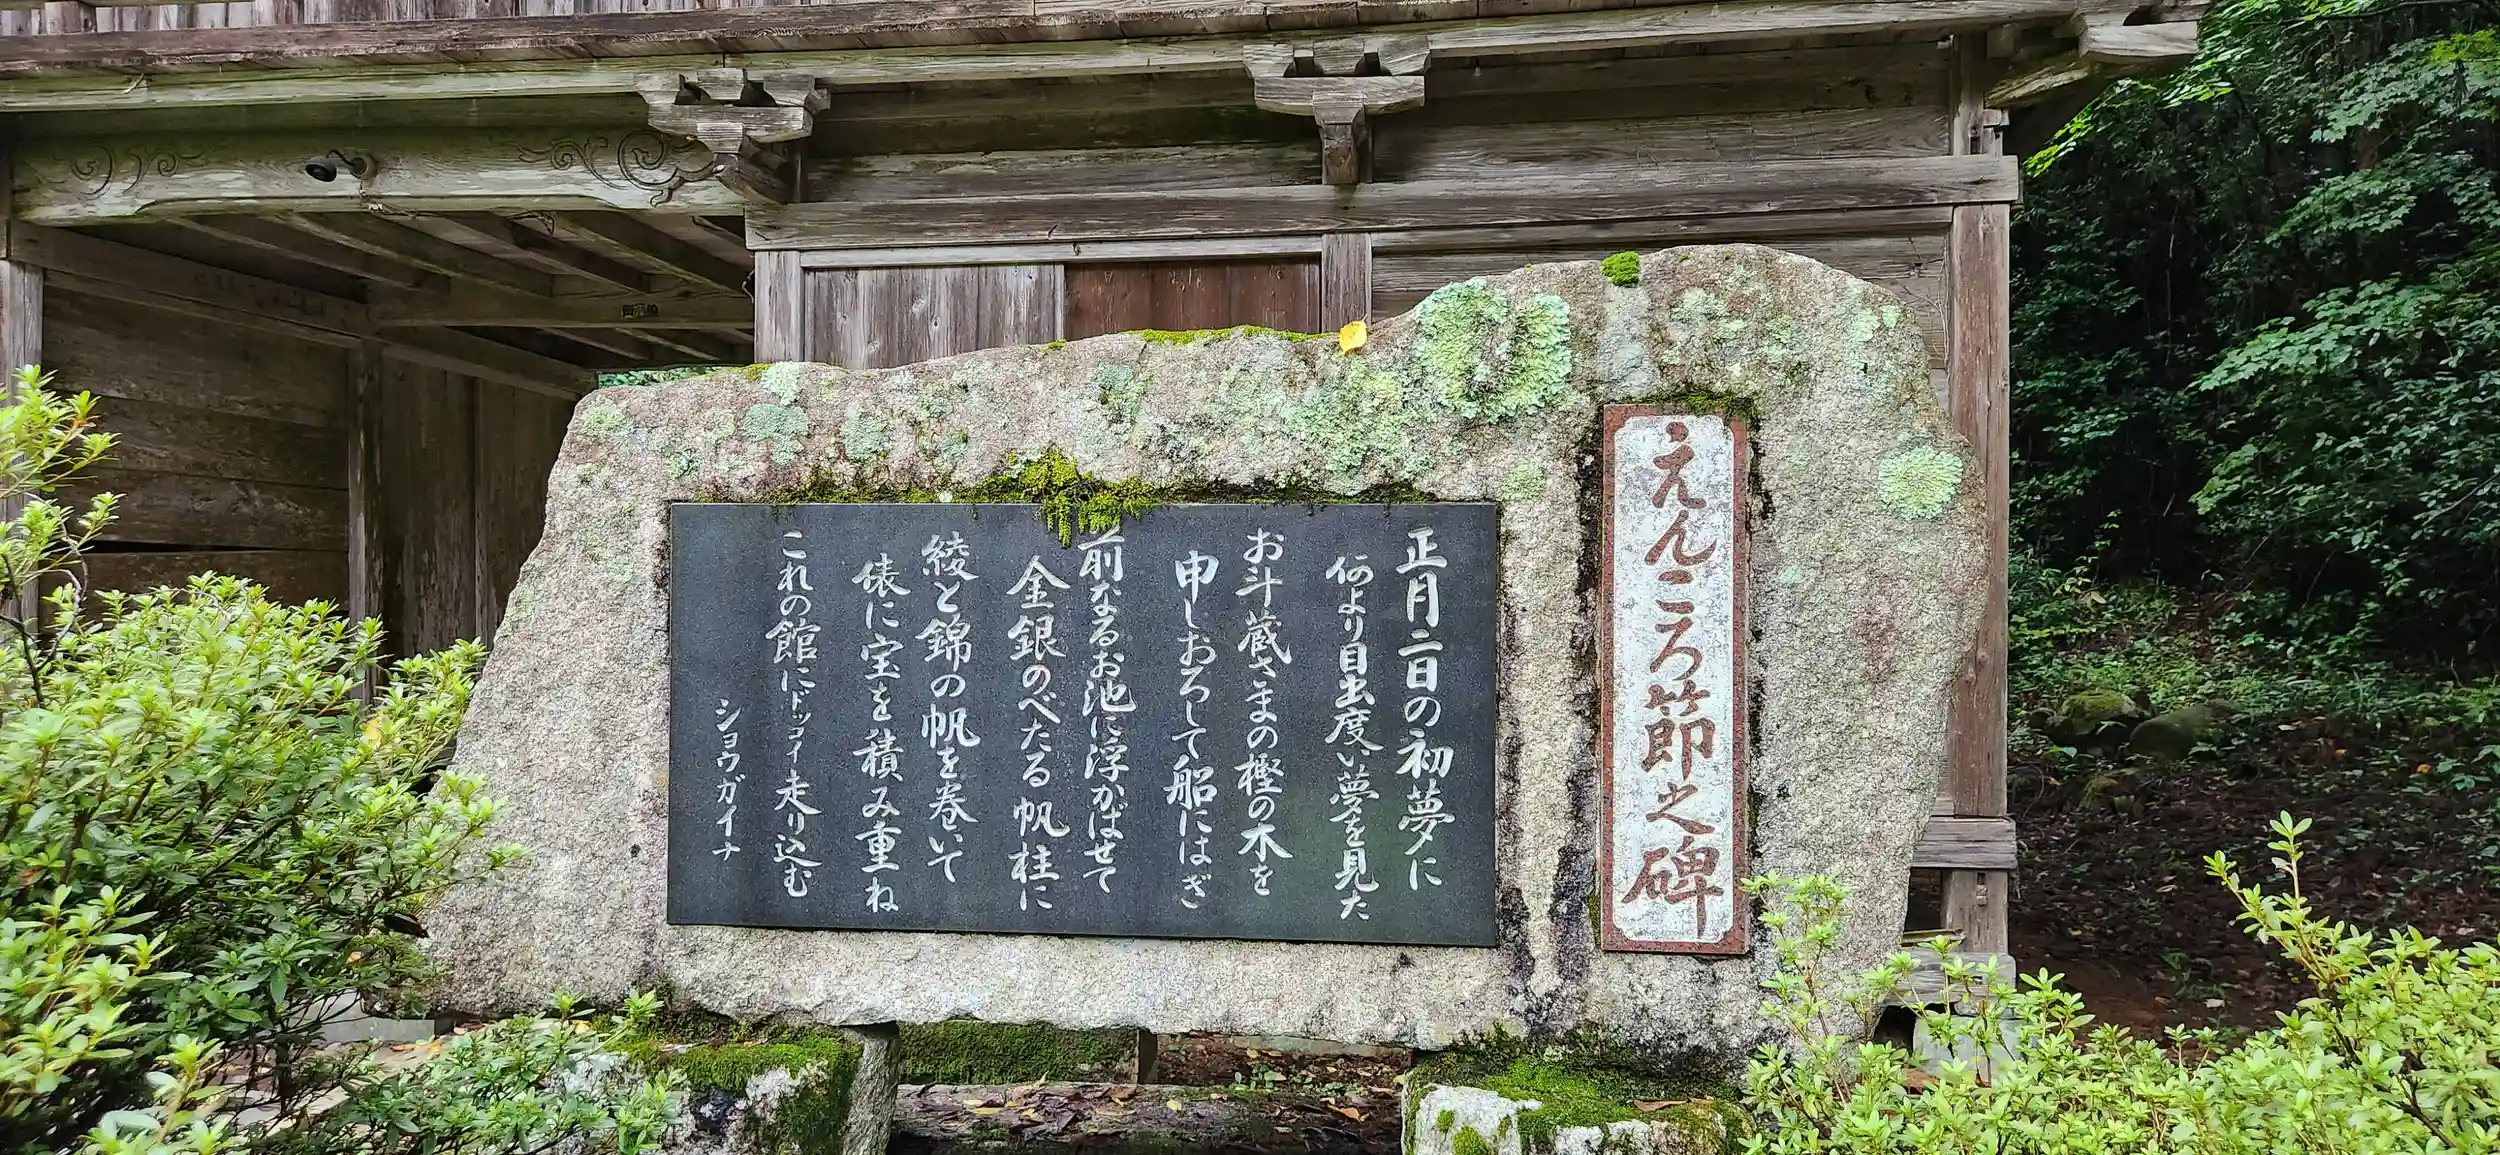 えんころ節之碑
正月二日の初夢に
何より目出度い夢を見た
お斗蔵さまの樫の木を
申しおろして船にはぎ
前なるお池に浮かばせて
金銀のべたる帆柱に
綾と錦の帆を巻いて
俵に宝を積み重ね
これの館にドッコイ走り込む
ショウガイナ